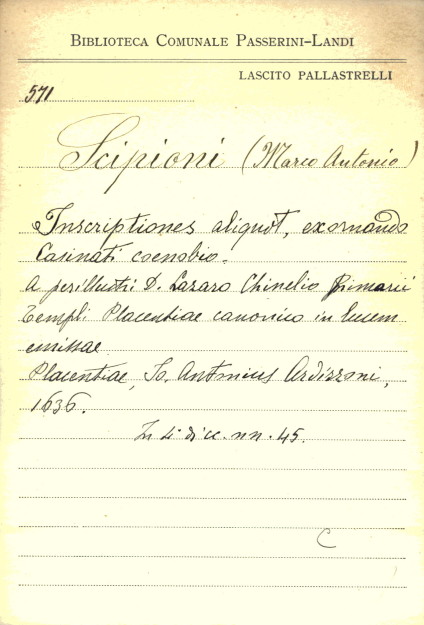 BIBLIOTECA COMUNALE PASSERINI-LANDI
LASCITO PALLASTRELLI
571
Scipioni (Marco Antonio)
Inscriptiones aliquot, exornando
Casinati coenobio.
A perillustri D. Lazaro Chinelio Primarii
Templi Placentiae canonico in lucem
emissae
Placentiae, Jo. Antonius Ardizzoni,
1636.
In 4° di cc. nn. 45.
C